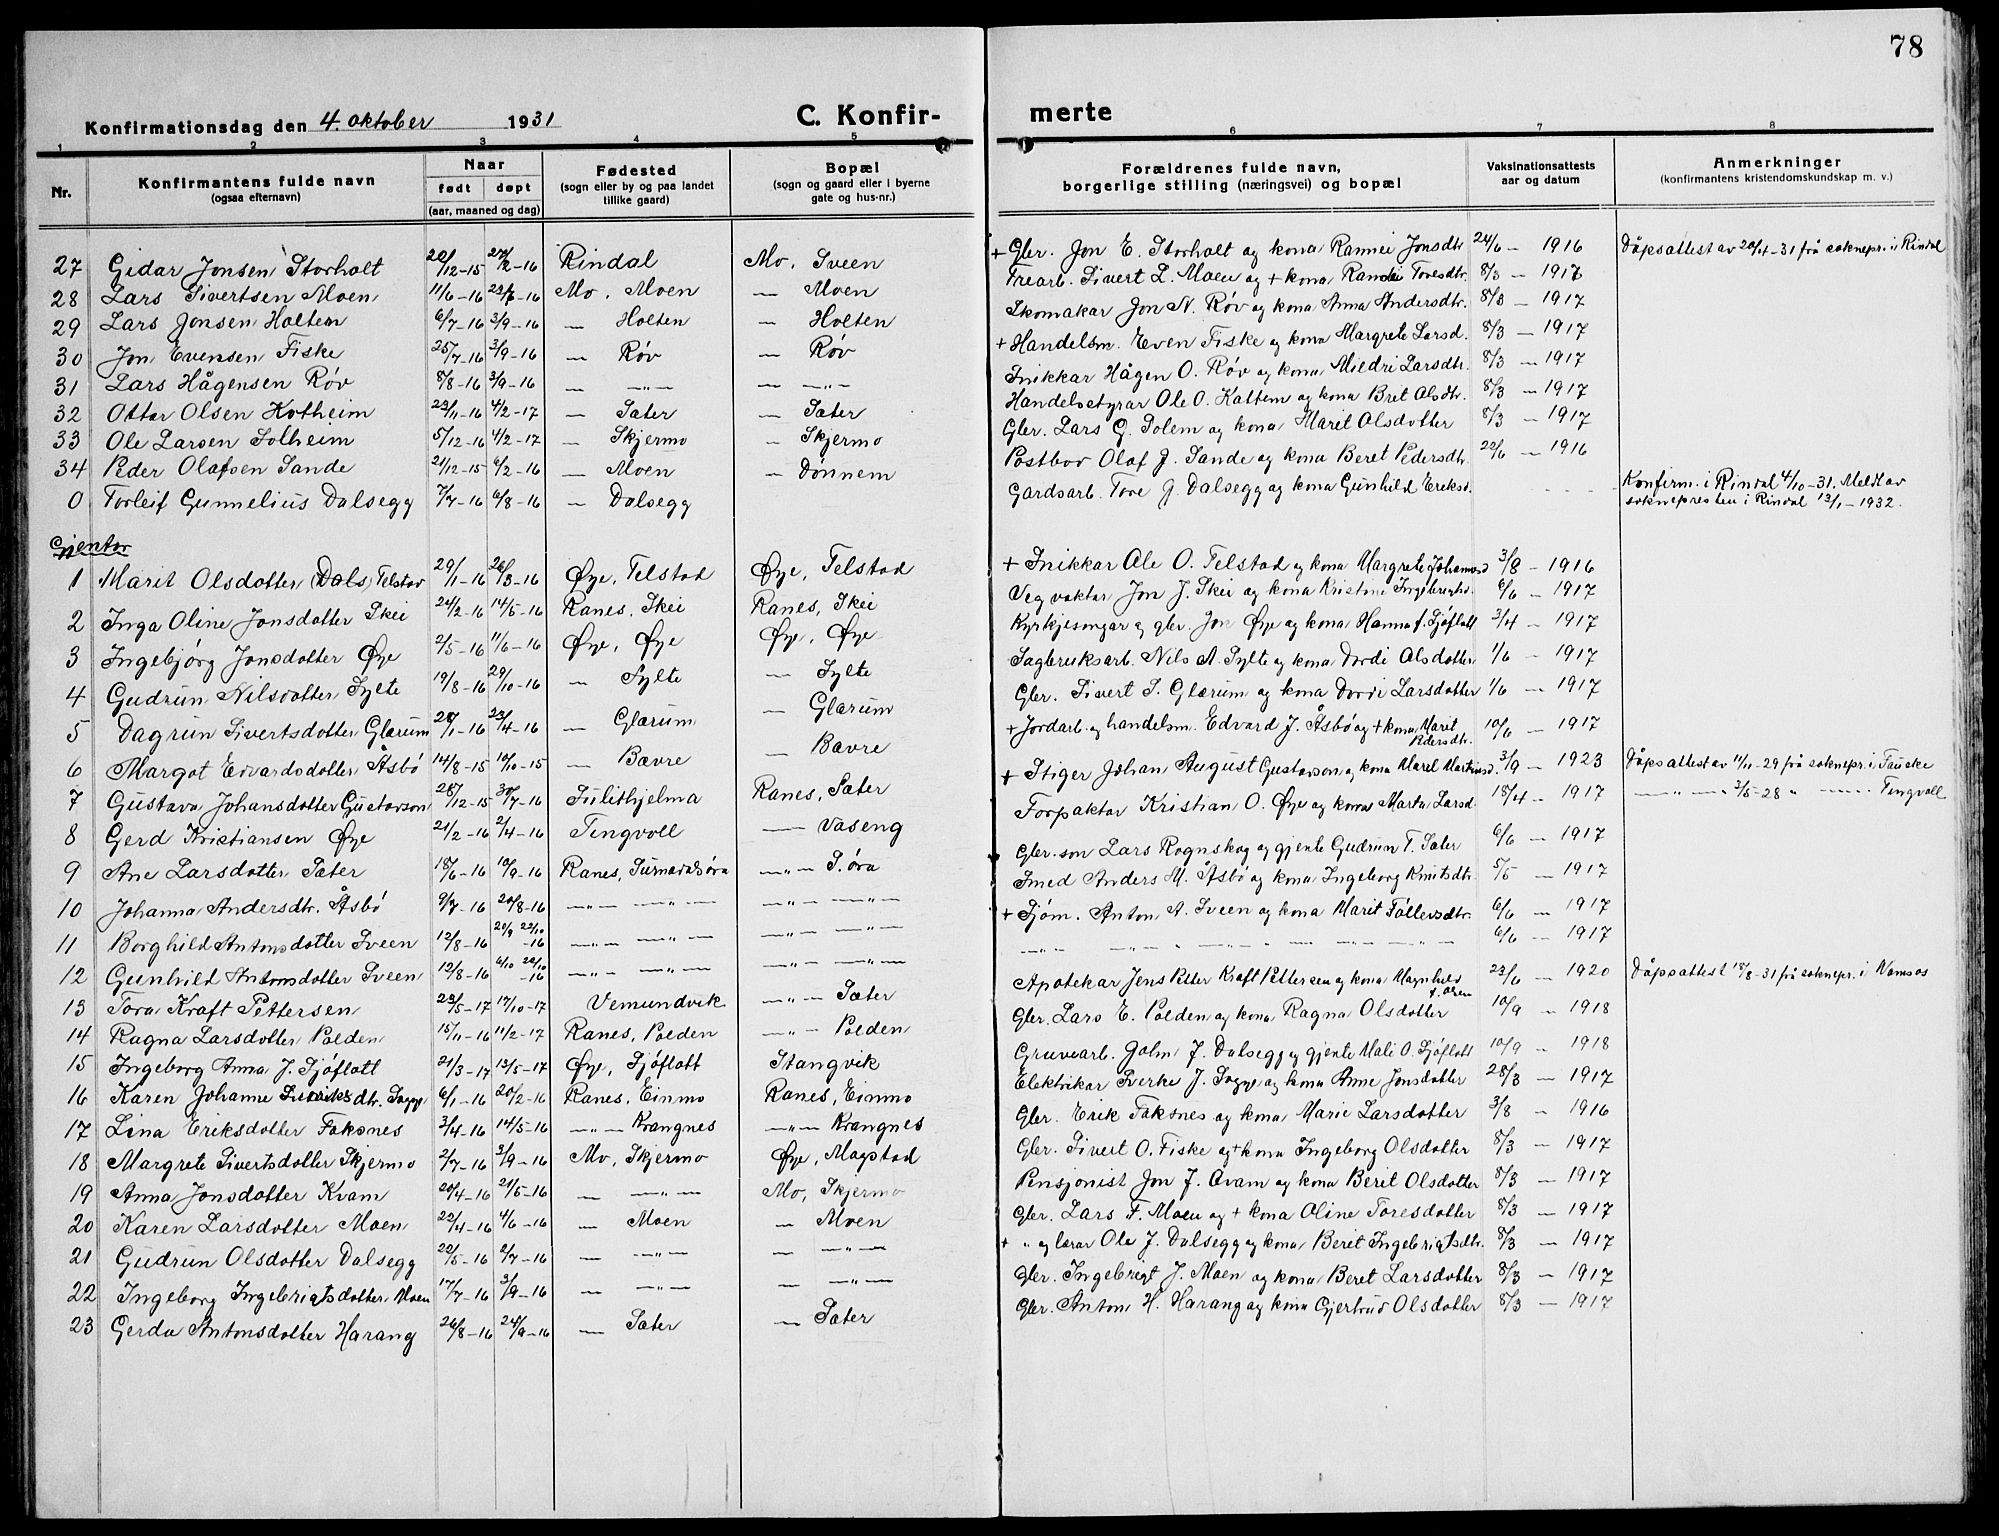 78
Konfirmationsdag den 4. oktober 1931 C. Konfir- merte
1 2 3 4 5 6 7 8
Nr. Konfirmantens fulde navn (ogsaa efternavn) Naar født døpt (aar, maaned og dag) Fødested (sogn eller by og paa landet tillike gaard) Bopæl (sogn og gaard eller i byerne gate og hus-nr.) Forældrenes fulde navn, borgerlige stilling (næringsvei) og bopæl Vaksinationsattests aar og datum Anmerkninger (konfirmantens kristendomskundskap m. v.)
27 Gidar Jonsen Storholt 20/12-15 27/2-16 Rindal Mo, Sveen + Gbr. Jon E. Storholt og kona Rannei Jonsdtr 24/6 — 1916 Dåpsattest av 20/4-31 frå soknepr. i Rindal
28 Lars Sivertsen Moen 11/6-16 23/7-16 Mo, Moen — Moen Trearb. Sivert L. Moen og + kona Randi Toresdtr. 8/3 — 1917
29 Lars Jonsen Holten 6/7-16 3/9-16 — Holten — Holten Skomakar Jon N. Røv og kona Anna Andersdtr. 8/3 — 1917
30 Jon Evensen Fiske 25/7-16 3/9-16 — Røv — Røv + Handelsm. Even Fiske og kona Margrete Larsd. 8/3 — 1917
31 Lars Hågensen Røv 8/8-16 3/9-16 — —"— — —"— Snikkar Hågen O. Røv og kona Mildri Larsdtr. 8/3 — 1917
32 Ottar Olsen Kotheim 23/11-16 4/2-17 — Sæter — Sæter Handelsstyrar Ole O. Kattem og kona Bret Olsdtr. 8/3 — 1917
33 Ole Larsen Solheim 5/12-16 4/2-17 — Skjermo — Skjermo Gbr. Lars G. Solem og kona Marit Olsdotter 8/3 — 1917
34 Peder Olafsen Sande 21/12-15 6/2-16 — Moen — Dønnem Postbor Olaf J. Sande og kona Beret Pedersdtr. 22/6 — 1916
0 Torleif Gunnelius Dalsegg 7/7-16 6/8-16 — Dalsegg Gardsarb. Tore J. Dalsegg og kona Gunhild Ereksd. Konfirm. i Rindal 4/10-31. Meldt av soknepresten i Rindal 13/1-1932.
Gjentor
1 Marit Olsdotter (Dals) Telstad 29/1-16 26/3-16 Øye, Telstad Øye, Telstad + Snikkar Ole O. Telstad og kona Margrete Johansd 3/8 — 1916
2 Inga Oline Jonsdotter Skei 24/2-16 14/5-16 Ranes, Skei Ranes, Skei Vegvaktar Jon J. Skei og kona Kristine Ingebrigtsd. 6/6 — 1917
3 Ingebjørg Jonsdotter Øye 2/5-16 11/6-16 Øye, Øye Øye, Øye Kyrkjesongar og gbr. Jon Øye og kona Hanna f. Sjøflott 3/4 — 1917
4 Gudrun Nilsdotter Sylte 19/8-16 29/10-16 — Sylte — Sylte Sagbruksarb. Nils A. Sylte og kona Dordi Olsdotter 1/6 — 1917
5 Dagrun Sivertsdotter Glærum 28/1-16 23/4-16 — Glærum — Glærum Gbr. Sivert S. Glærum og kona Dordi Larsdotter 1/6 — 1917
6 Margot Edvardsdotter Åsbø 14/8-15 10/10-15 — Bævre — Bævre + Jordarb. og handelsm. Edvard J. Åsbø og + kona Marit Pedersdtr. 10/6 — 1917
7 Gustava Johansdotter Gustavson 28/12-15 30/7-16 Sulithjelma Ranes, Sæter + Stiger Johan August Gustavson og kona Marel Martinsd. 3/9 — 1923 Dåpsattest av 11/11-29 frå soknepr. i Fauske
8 Gerd Kristiansen Øye 21/2-16 2/4-16 Tingvoll — Vaseng Forpaktar Kristian O. Øye og kona Marta Larsd. 18/4 — 1917 —"— 3/5-28 " — Tingvoll
9 Ane Larsdotter Sæter 18/6-16 10/9-16 Ranes, Surnadalsøra —"— S.øra Gbr.son Lars Rognskog og gjente Gudrun T. Sæter 6/6 — 1917
10 Johanna Andersdtr. Åsbø 9/7-16 20/8-16 —"— —"— —"— —"— Smed Anders M. Åsbø og kona Ingeborg Knutsdtr. 5/5 — 1917
11 Borghild Antonsdotter Sveen 12/8-16 20/9 22/10-16 —"— —"— —"— —"— + Sjøm. Anton A. Sveen og kona Marit Fallersdtr. 6/6 — 1917
12 Gunhild Antonsdotter Sveen 12/8-16 6/10 22/10-16 —"— —"— —"— —"— —"— 6/6 — 1917
13 Tora Kraft Pettersen 23/5-17 17/10-17 Vemundvik —"— Sæter Apotekar Jens Petter Kraft Pettersen og kona Magnhild f. Olsen 23/6 — 1920 Dåpsattest 18/8-31 frå soknepr. i Namsos
14 Ragna Larsdotter Polden 15/11-16 11/2-17 Ranes, Polden —"— Polden Gbr. Lars E. Polden og kona Ragna Olsdotter 10/9 — 1918
15 Ingeborg Anna J. Sjøflott 21/3-17 13/5-17 Øye, Sjøflott Stangvik Gruvearb. John J. Dalsegg og gjente Mali O. Sjøflott 10/9 — 1918
16 Karen Johanne Sverkesdtr. Sogge 6/1-16 20/2-16 Ranes, Einmo Ranes, Einmo Elektrikar Sverke J. Sogge og kona Anne Jonsdotter 28/3 — 1917
17 Lina Eriksdotter Faksnes 3/4-16 14/5-16 —"— Krangnes —"— Krangnes Gbr. Erik Faksnes og kona Marie Larsdotter 3/8 — 1916
18 Margrete Sivertsdotter Skjermo 2/7-16 3/9-16 Mo, Skjermo Øye, Magstad Gbr. Sivert O. Fiske og + kona Ingeborg Olsdotter 8/3 — 1917
19 Anna Jonsdotter Kvam 20/4-16 21/5-16 — —"— Mo, Skjermo Pensjonist Jon J. Qvam og kona Berit Olsdotter 8/3 — 1917
20 Karen Larsdotter Moen 22/4-16 4/6-16 — Moen — Moen Gbr. Lars F. Moen og + kona Oline Toresdotter 8/3 — 1917
21 Gudrun Olsdotter Dalsegg 22/5-16 2/7-16 — —"— — —"— + " og lærar Ole J. Dalsegg og kona Beret Ingebrigtsdtr. 8/3 — 1917
22 Ingeborg Ingebrigtsdotter Moen 17/7-16 3/9-16 — —"— — —"— Gbr. Ingebrigt J. Moen og kona Beret Larsdotter 8/3 — 1917
23 Gerda Antonsdotter Harang 26/8-16 24/9-16 — Sæter — Sæter Gbr. Anton H. Harang og kona Gjertrud Olsdotter 8/3 — 1917